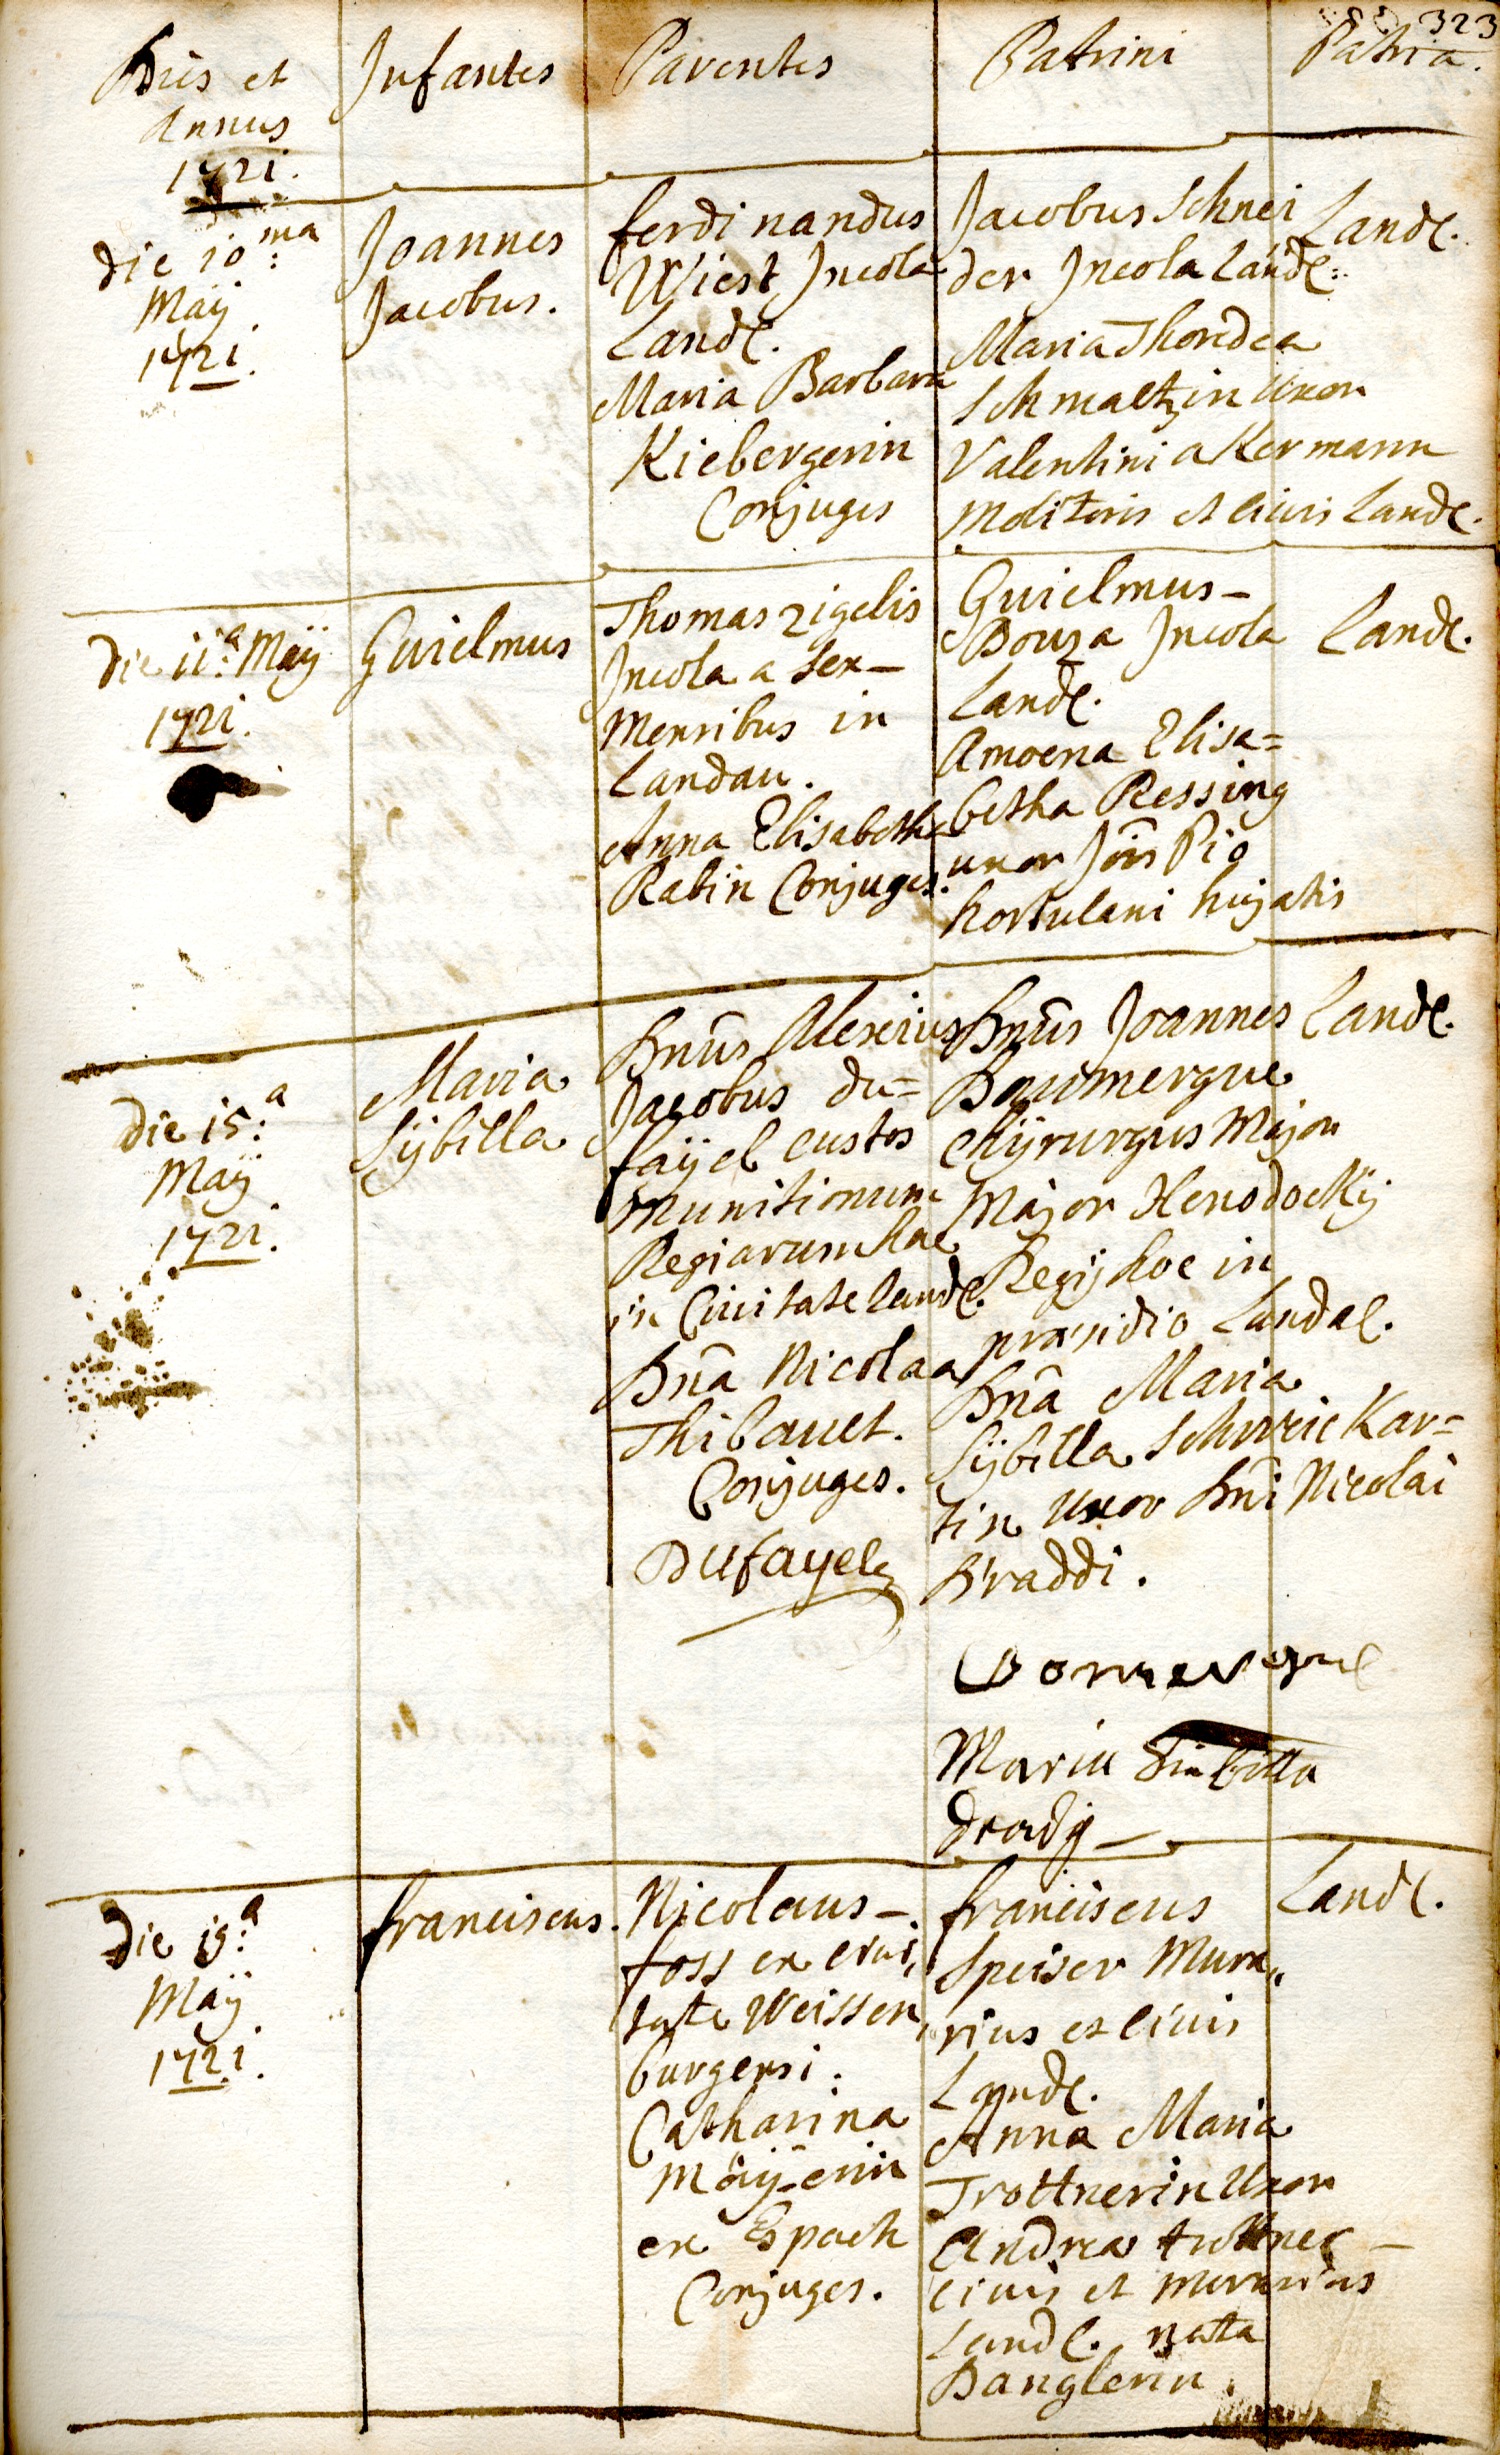 323
Dies et
Annus
1721.
Infantes
Parentes
Patrini
Patria.
die 10:ma
Maÿ
1721.
Joannes
Jacobus.
ferdinandus
Wiest Incola
Landl.
Maria Barbara
Kiebergerin
Conjuges
Jacobus Schnei
der Incola Landl:
Maria Thoredea
Schmaltzin Uxor
Valentini akermann
Molitoris et civis Landl.
Landl.
die 11:a Maÿ
1721.
Guielmus
Thomas Zigelis
Incola a sex–
Mensibus in
Landau.
Anna Elisabetha
Rabin Conjuges.
Guielmus–
Bouza Incola
Landl.
Amoena Elisa=
betha Ressing
uxor Jois Pio
hortulani hujatis
Landl.
die 15:a
Maÿ
1721.
Maria
Sÿbilla
Dnus Alexius
Jacobus du=
faÿel custos
Munitionum
Regiarum hac
in Civitate Landl.
Dna Nicolaa
Thibault.
Conjuges.
Dufayel
Dnus Joannes
Boumergue
Chÿrurgus Major
Major Xenodochÿ
Regÿ hoc in
præsidio Landal.
Dna Maria
Sÿbilla Schweickar=
tin Uxor Dni Nicolai
Draddi.
Bomergue
Maria Sinbilla
dradÿ
Landl.
Die 15:a
Maÿ
1721.
franciscus.
Nicolaus–
foss ex civi,,
tate Weissen,,
burgensi.
Catharina
Maÿerin
ex Espach
Conjuges.
franciscus
Speiser Mura,,
rius et civis
Landl.
Anna Maria
Trottnerin Uxor
Andreæ trottner–
civis et murarius
Landl. nata
Danglerin.
Landl.